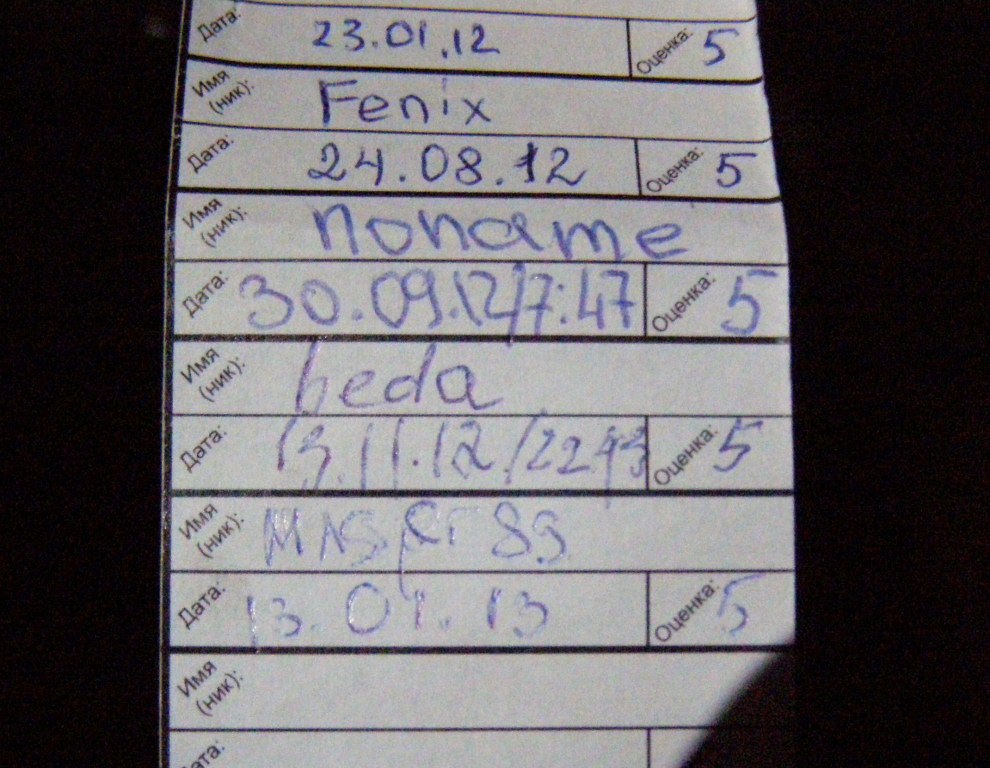 Дата: 23.01.12 Оценка: 5
Имя (ник): Fenix
Дата: 24.08.12 Оценка: 5
Имя (ник): noname
Дата: 30.09.12/7:47 Оценка: 5
Имя (ник): beda
Дата: 13.11.12/2243 Оценка: 5
Имя (ник):
Дата: 13.01.13 Оценка: 5
Имя (ник):
Дата: